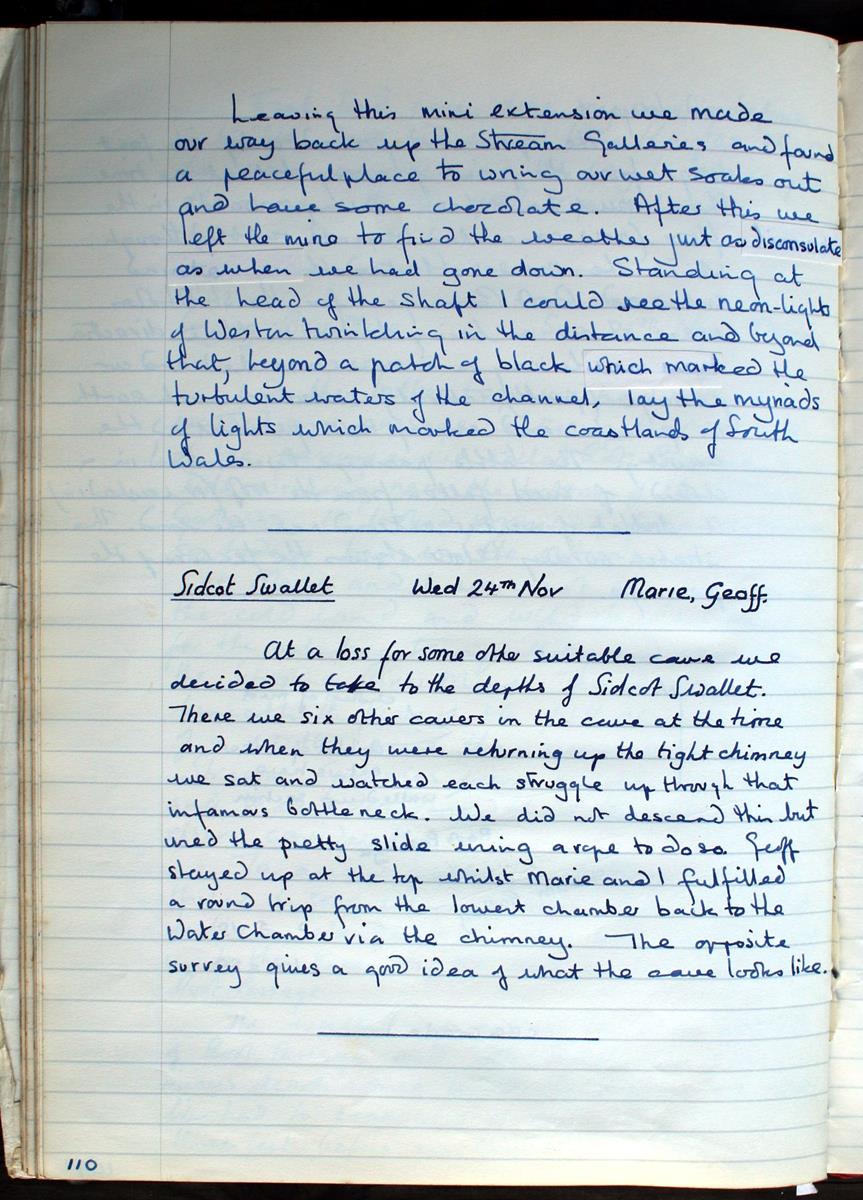 Leaving this mini extension we made
our way back up the Stream Galleries and found
a peaceful place to wring our wet soaks out
and have some chocolate. After this we
left the mine to find the weather just as disconsulate
as when we had gone down. Standing at
the head of the shaft I could see the neon-lights
of Weston twinkling in the distance and beyond
that, beyond a patch of black which marked the
turbulent waters of the channel, lay the myriads
of lights which marked the coastlands of South
Wales.
Sidcot Swallet Wed 24th Nov Marie, Geoff.
At a loss for some othe suitable cave we
decided to take to the depths of Sidcot Swallet.
There we six other cavers in the cave at the time
and when they were returning up the tight chimney
we sat and watched each struggle up through that
infamous bottleneck. We did not descend this but
used the pretty slide using a rope to do so. Geoff
stayed up at the top whilst Marie and I fulfilled
a round trip from the lowest chamber back to the
Water Chamber via the chimney. The opposite
survey gives a good idea of what the cave looks like.
110